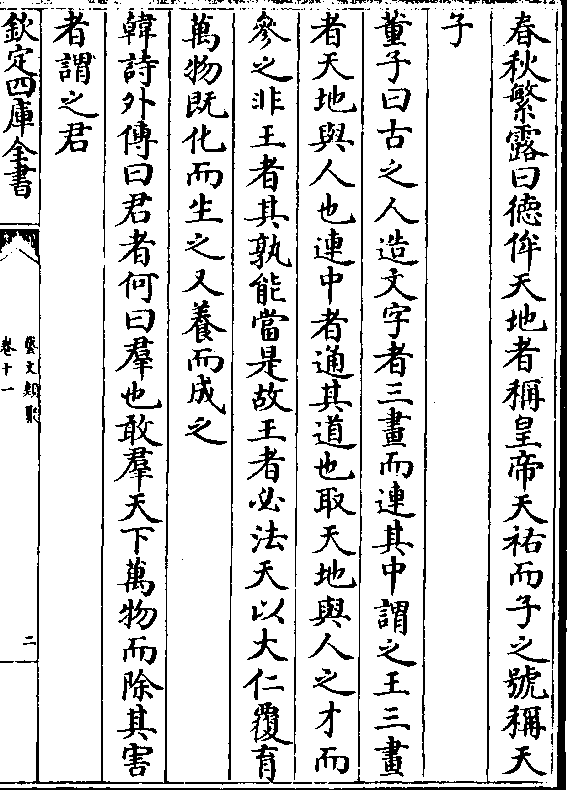 春秋繁露曰德侔天地者稱皇帝天祐而子之號稱天
子
董子曰古之人造文字者三畫而連其中謂之王三畫
者天地與人也連中者通其道也取天地與人之才而
參之非王者其孰能當是故王者必法天以大仁覆育
萬物既化而生之又養而成之
韓詩外傳曰君者何曰羣也敢羣天下萬物而除其害
者謂之君
欽定四庫全書
藝文類聚
卷十一
二